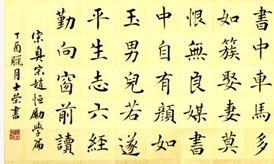 書中車馬多
如簇娶妻莫
恨無良媒書
中自有顏如
玉男兒欲遂
平生志六經
勤向窗前讀
宋真宗趙恒勵學篇
丁酉臘月士榮書